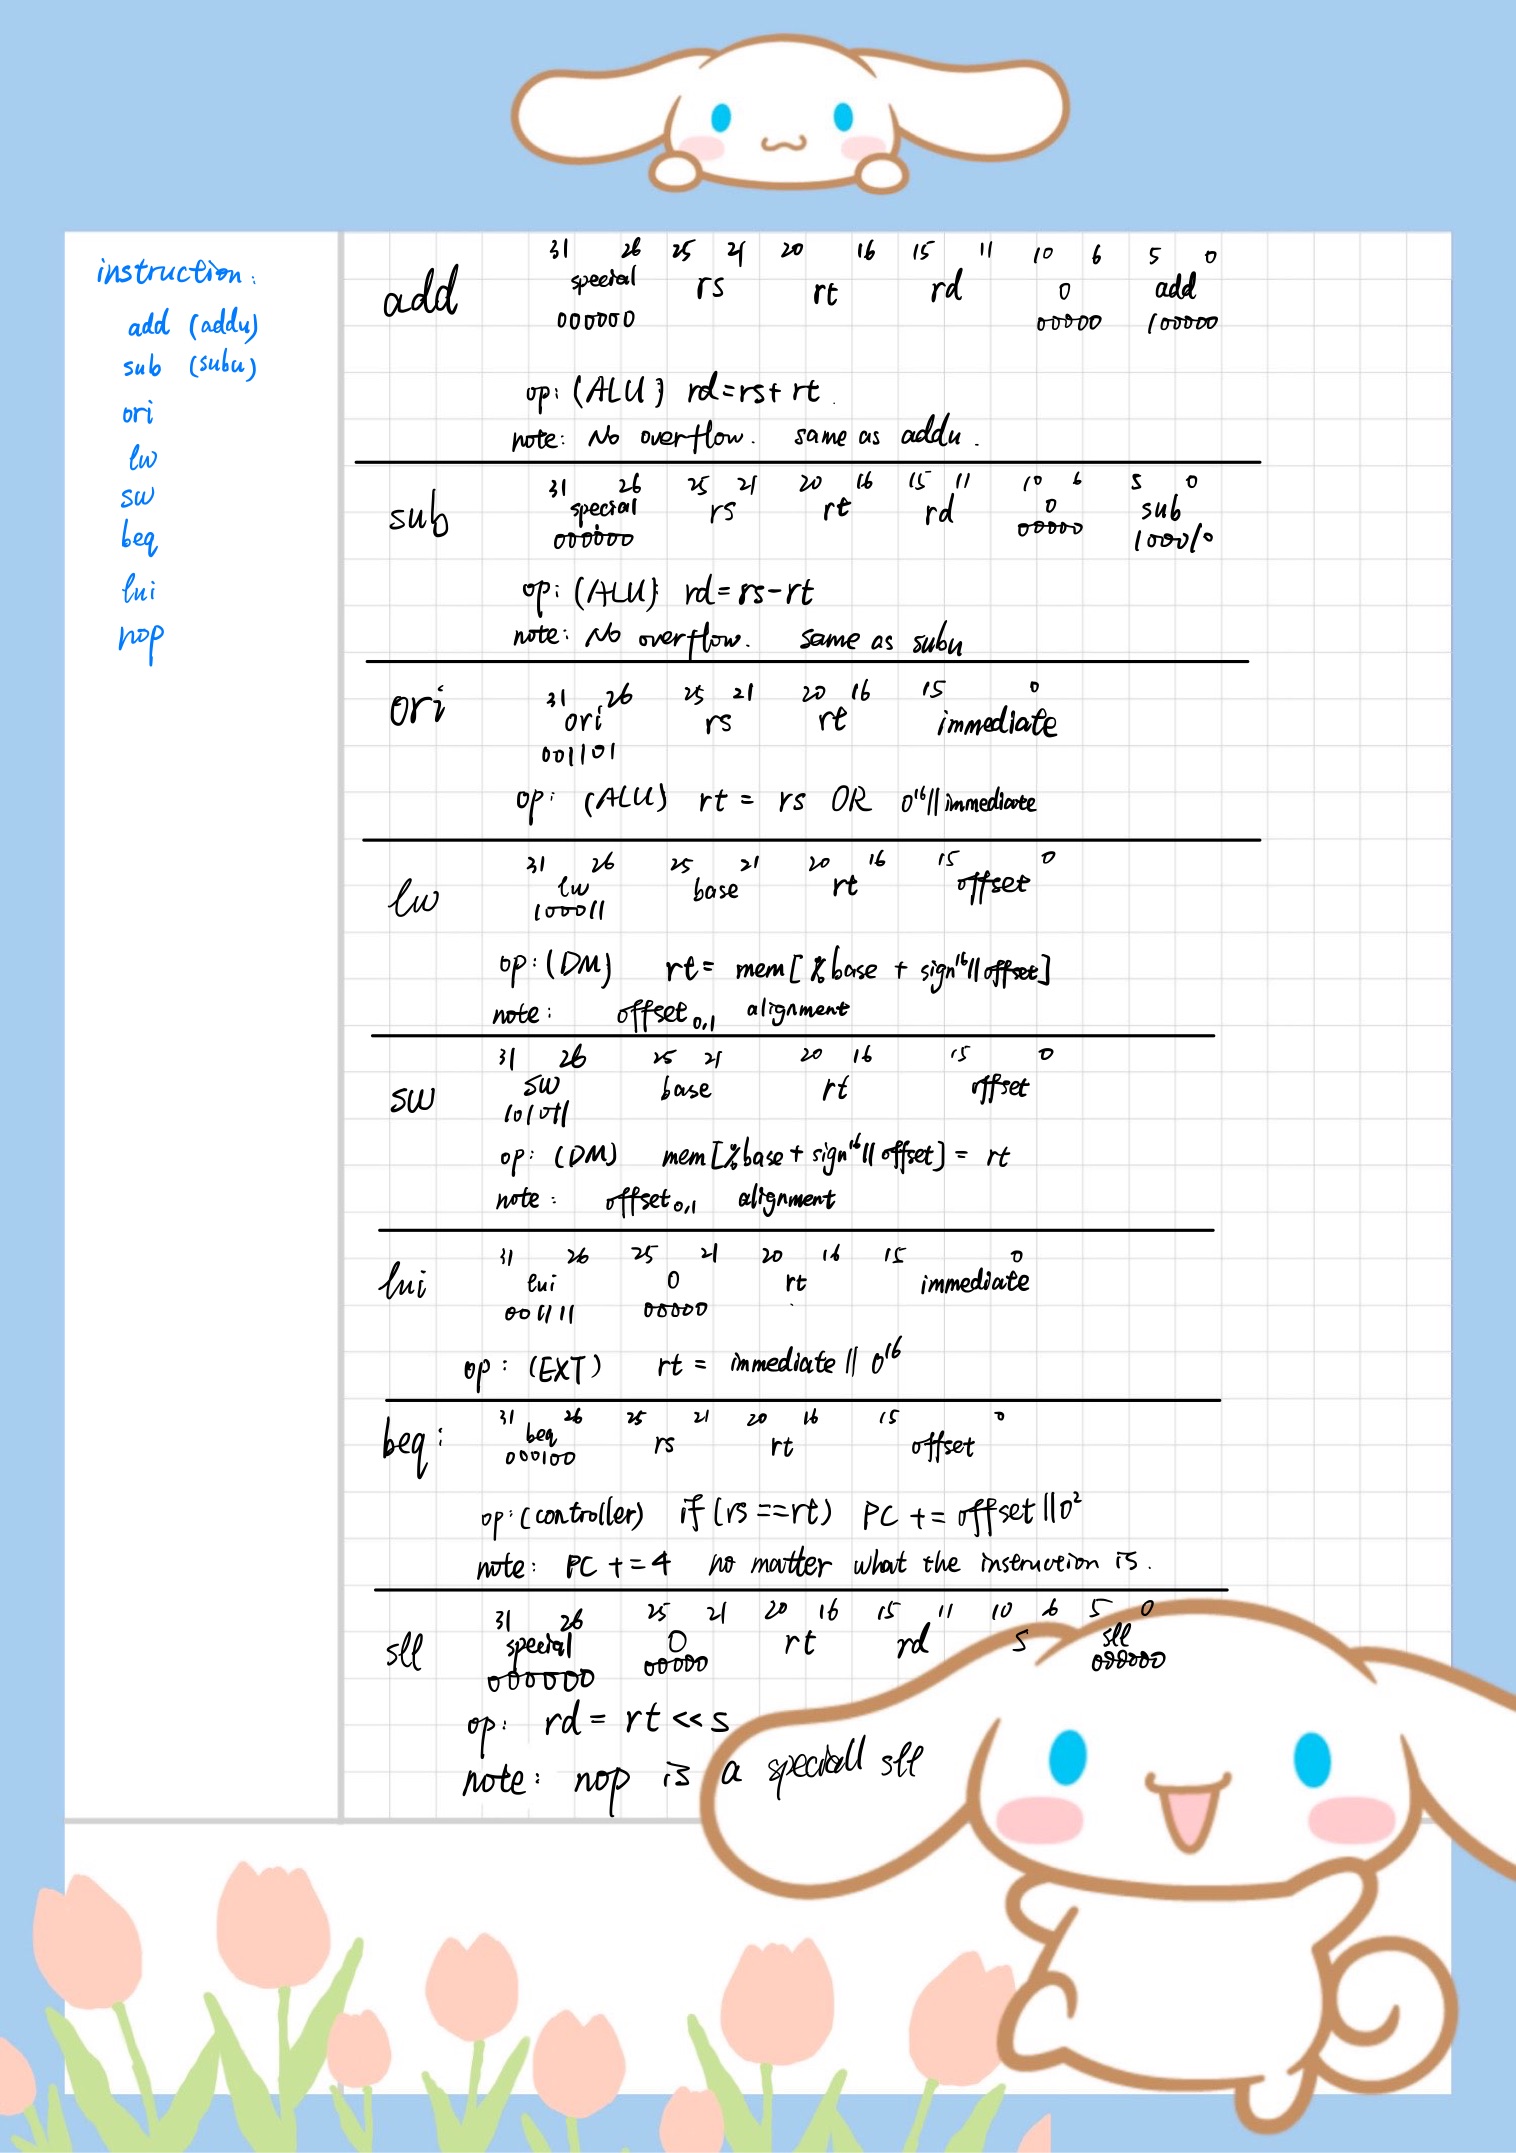 instruction:
add (addu)
sub (subu)
ori
lw
sw
beq
lui
nop
31 26 25 21 20 16 15 11 10 6 5 0
add special rs rt rd 0 add
000000 00000 100000
op: (ALU) rd=rs+rt
note: No overflow. same as addu.
31 26 25 21 20 16 15 11 10 6 5 0
sub special rs rt rd 0 sub
000000 00000 100010
op: (ALU) rd=rs-rt
note: No overflow. same as subu
31 26 25 21 20 16 15 0
ori ori rs rt immediate
001101
op: (ALU) rt = rs OR 0¹⁶||immediate
31 26 25 21 20 16 15 0
lw lw base rt offset
100011
op: (DM) rt= mem[%base + sign¹⁶||offset]
note: offset₀,₁ alignment
31 26 25 21 20 16 15 0
sw sw base rt offset
101011
op: (DM) mem[%base + sign¹⁶||offset] = rt
note: offset₀,₁ alignment
31 26 25 21 20 16 15 0
lui lui 0 rt immediate
001111 00000
op: (EXT) rt = immediate || 0¹⁶
31 26 25 21 20 16 15 0
beq: beq rs rt offset
000100
op: (controller) if (rs ==rt) PC += offset||0²
note: PC +=4 no matter what the instruction is.
31 26 25 21 20 16 15 11 10 6 5 0
sll special 0 rt rd s sll
000000 00000 000000
op: rd = rt << s
note: nop is a speciall sll